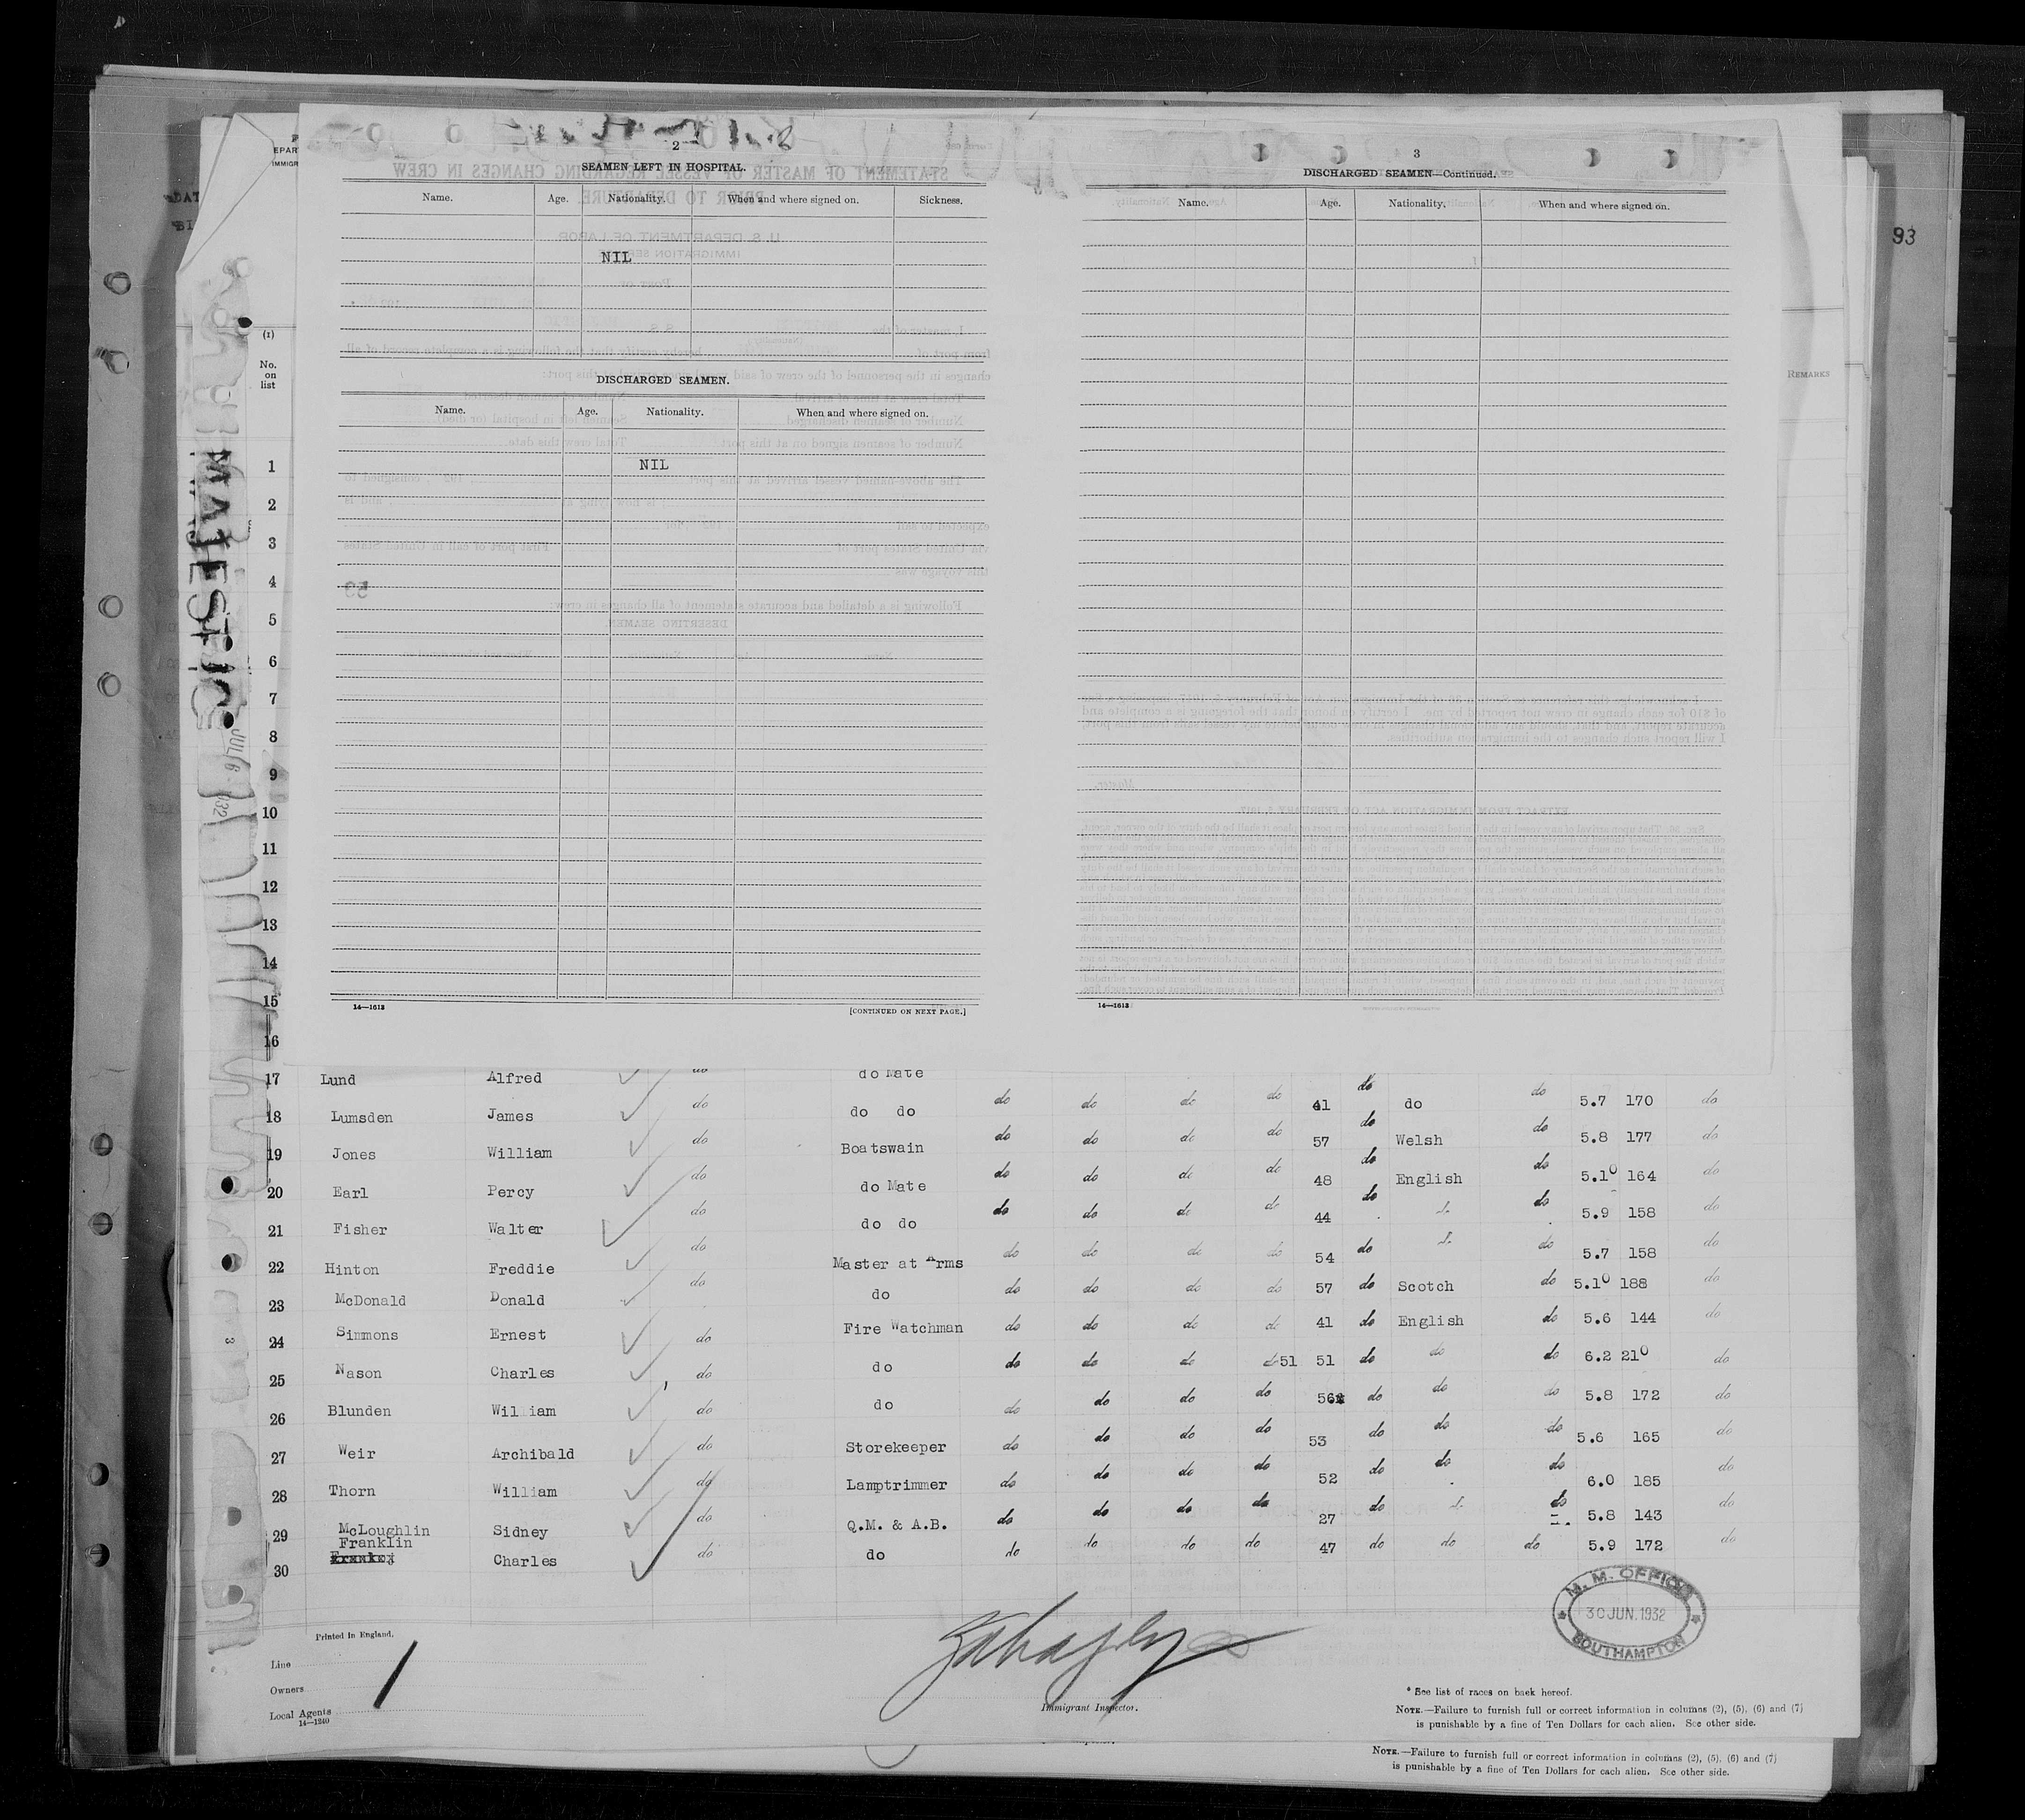 2
SEAMEN LEFT IN HOSPITAL.
Name. Age. Nationality. When and where signed on. Sickness.
NIL
DISCHARGED SEAMEN.
Name. Age. Nationality. When and where signed on.
NIL
14—1613 [CONTINUED ON NEXT PAGE.]
3
DISCHARGED SEAMEN—Continued.
Name. Age. Nationality. When and where signed on.
14—1613
93
REMARKS
EPAR
IMMIGR
(1)
No.
on
list
MAJESTIC
JUL 6 1932
1
2
3
4
5
6
7
8
9
10
11
12
13
14
15
16
17 Lund Alfred do do Mate do
18 Lumsden James do do do do do do do 41 do do do 5.7 170 do
19 Jones William do Boatswain do do do do 57 do Welsh do 5.8 177 do
20 Earl Percy do do Mate do do do do 48 do English do 5.10 164 do
21 Fisher Walter do do do do do do do 44 do do 5.9 158 do
22 Hinton Freddie do Master at Arms do do do do 54 do do 5.7 158 do
23 McDonald Donald do do do do do do 57 do Scotch do 5.10 188 do
24 Simmons Ernest do Fire Watchman do do do do 41 do English do 5.6 144 do
25 Nason Charles do do do do do do 51 51 do do do 6.2 210 do
26 Blunden William do do do do do do 56 do do do 5.8 172 do
27 Weir Archibald do Storekeeper do do do do 53 do do do 5.6 165 do
28 Thorn William do Lamptrimmer do do do do 52 do do do 6.0 185 do
29 McLoughlin Sidney do Q.M. & A.B. do do do do 27 do do 5.8 143 do
Franklin
30 Charles do do do do do do 47 do do do 5.9 172 do
Printed in England.
Line
Owners
Local Agents
14—1240
Immigrant Inspector.
M. M. OFFICE
30 JUN. 1932
SOUTHAMPTON
* See list of races on back hereof.
NOTE.—Failure to furnish full or correct information in columns (2), (5), (6) and (7)
is punishable by a fine of Ten Dollars for each alien. See other side.
NOTE.—Failure to furnish full or correct information in columns (2), (5), (6) and (7)
is punishable by a fine of Ten Dollars for each alien. See other side.